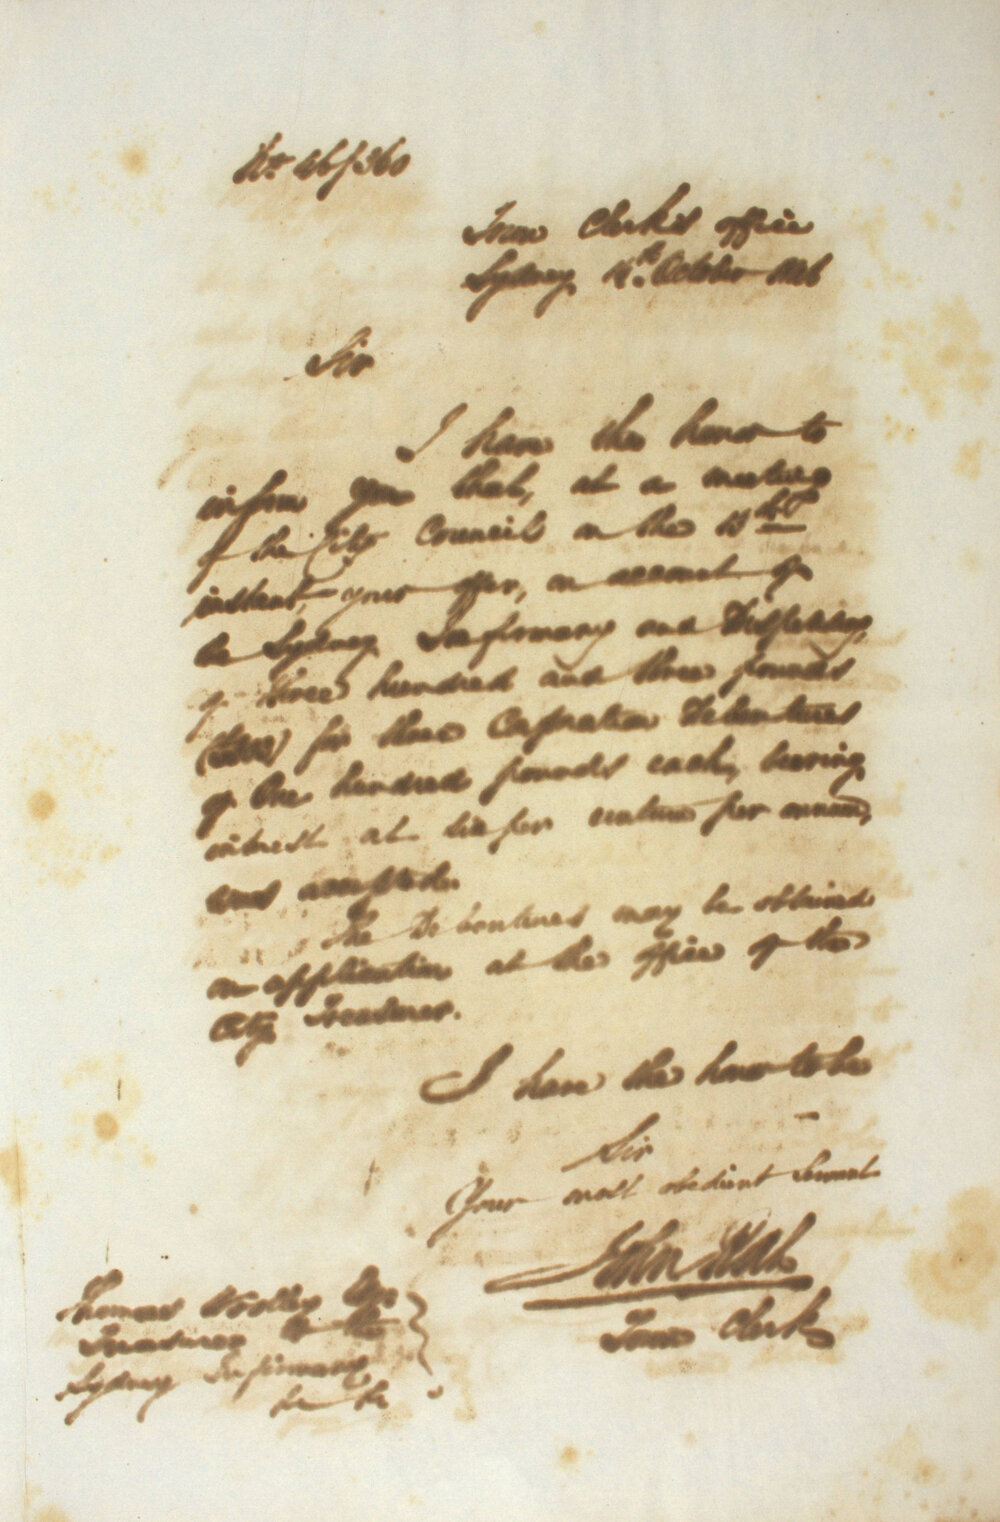 No 46/360
Town Clerk's Office
Sydney 14th October 1846
Sir
I have the honor to
inform you that, at a meeting
of the City Council on the 13th
instant, your offer, on account of
the Sydney Infirmary and Dispensary,
of three hundred and three pounds
(£303) for three Corporation Debentures
of One hundred pounds each, bearing
interest at six per centum per annum,
was accepted.
The Debentures may be obtained
on application at the office of the
City Treasurer.
I have the honor to be
Sir
Your most obedient Servant
John
Town Clerk
Thomas Woolley Esqr
Treasurer of the
Sydney Infirmary
&c &c